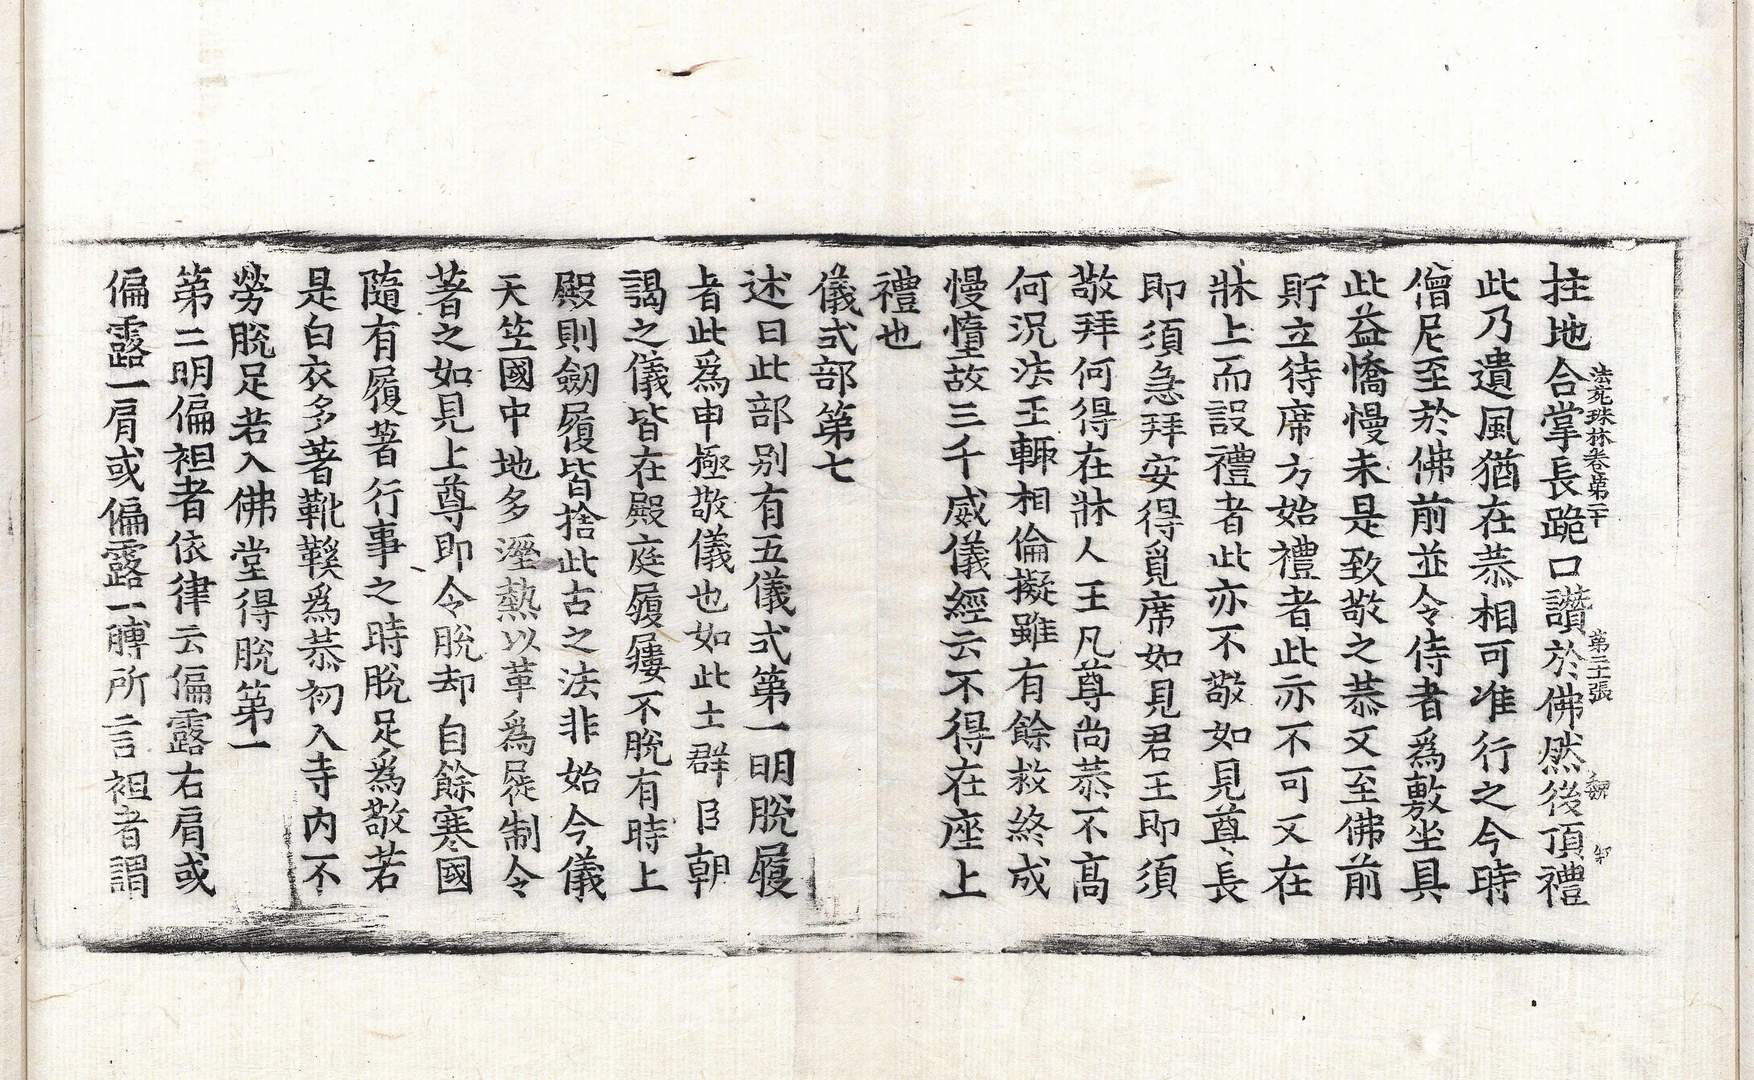 拄地合掌長跪口讃於佛然後頂禮
法苑珠林卷第二十 第三十張
此乃遺風猶在恭相可准行之今時
僧尼至於佛前並令侍者爲敷坐具
此益憍慢未是致敬之恭又至佛前
貯立待席方始禮者此亦不可又在
牀上而設禮者此亦不敬如見尊長
即須急拜安得覓席如見君王即須
敬拜何得在牀人王凡尊尚恭不高
何況法王輙相倫擬雖有餘救終成
慢憻故三千威儀經云不得在座上
禮也
儀式部第七
述曰此部别有五儀式第一明脫屐
者此爲申極敬儀也如此土群臣朝
謁之儀皆在殿庭履屨不脫有時上
殿則劒履皆捨此古之法非始今儀
天竺國中地多溼熱以革爲屣制令
著之如見上尊即令脫却自餘寒國
隨有履著行事之時脫足爲敬若
是白衣多著靴鞵爲恭初入寺内不
勞脫足若入佛堂得脫第一
第二明偏袒者依律云偏露右肩或
偏露一肩或偏露一髆所言袒者謂